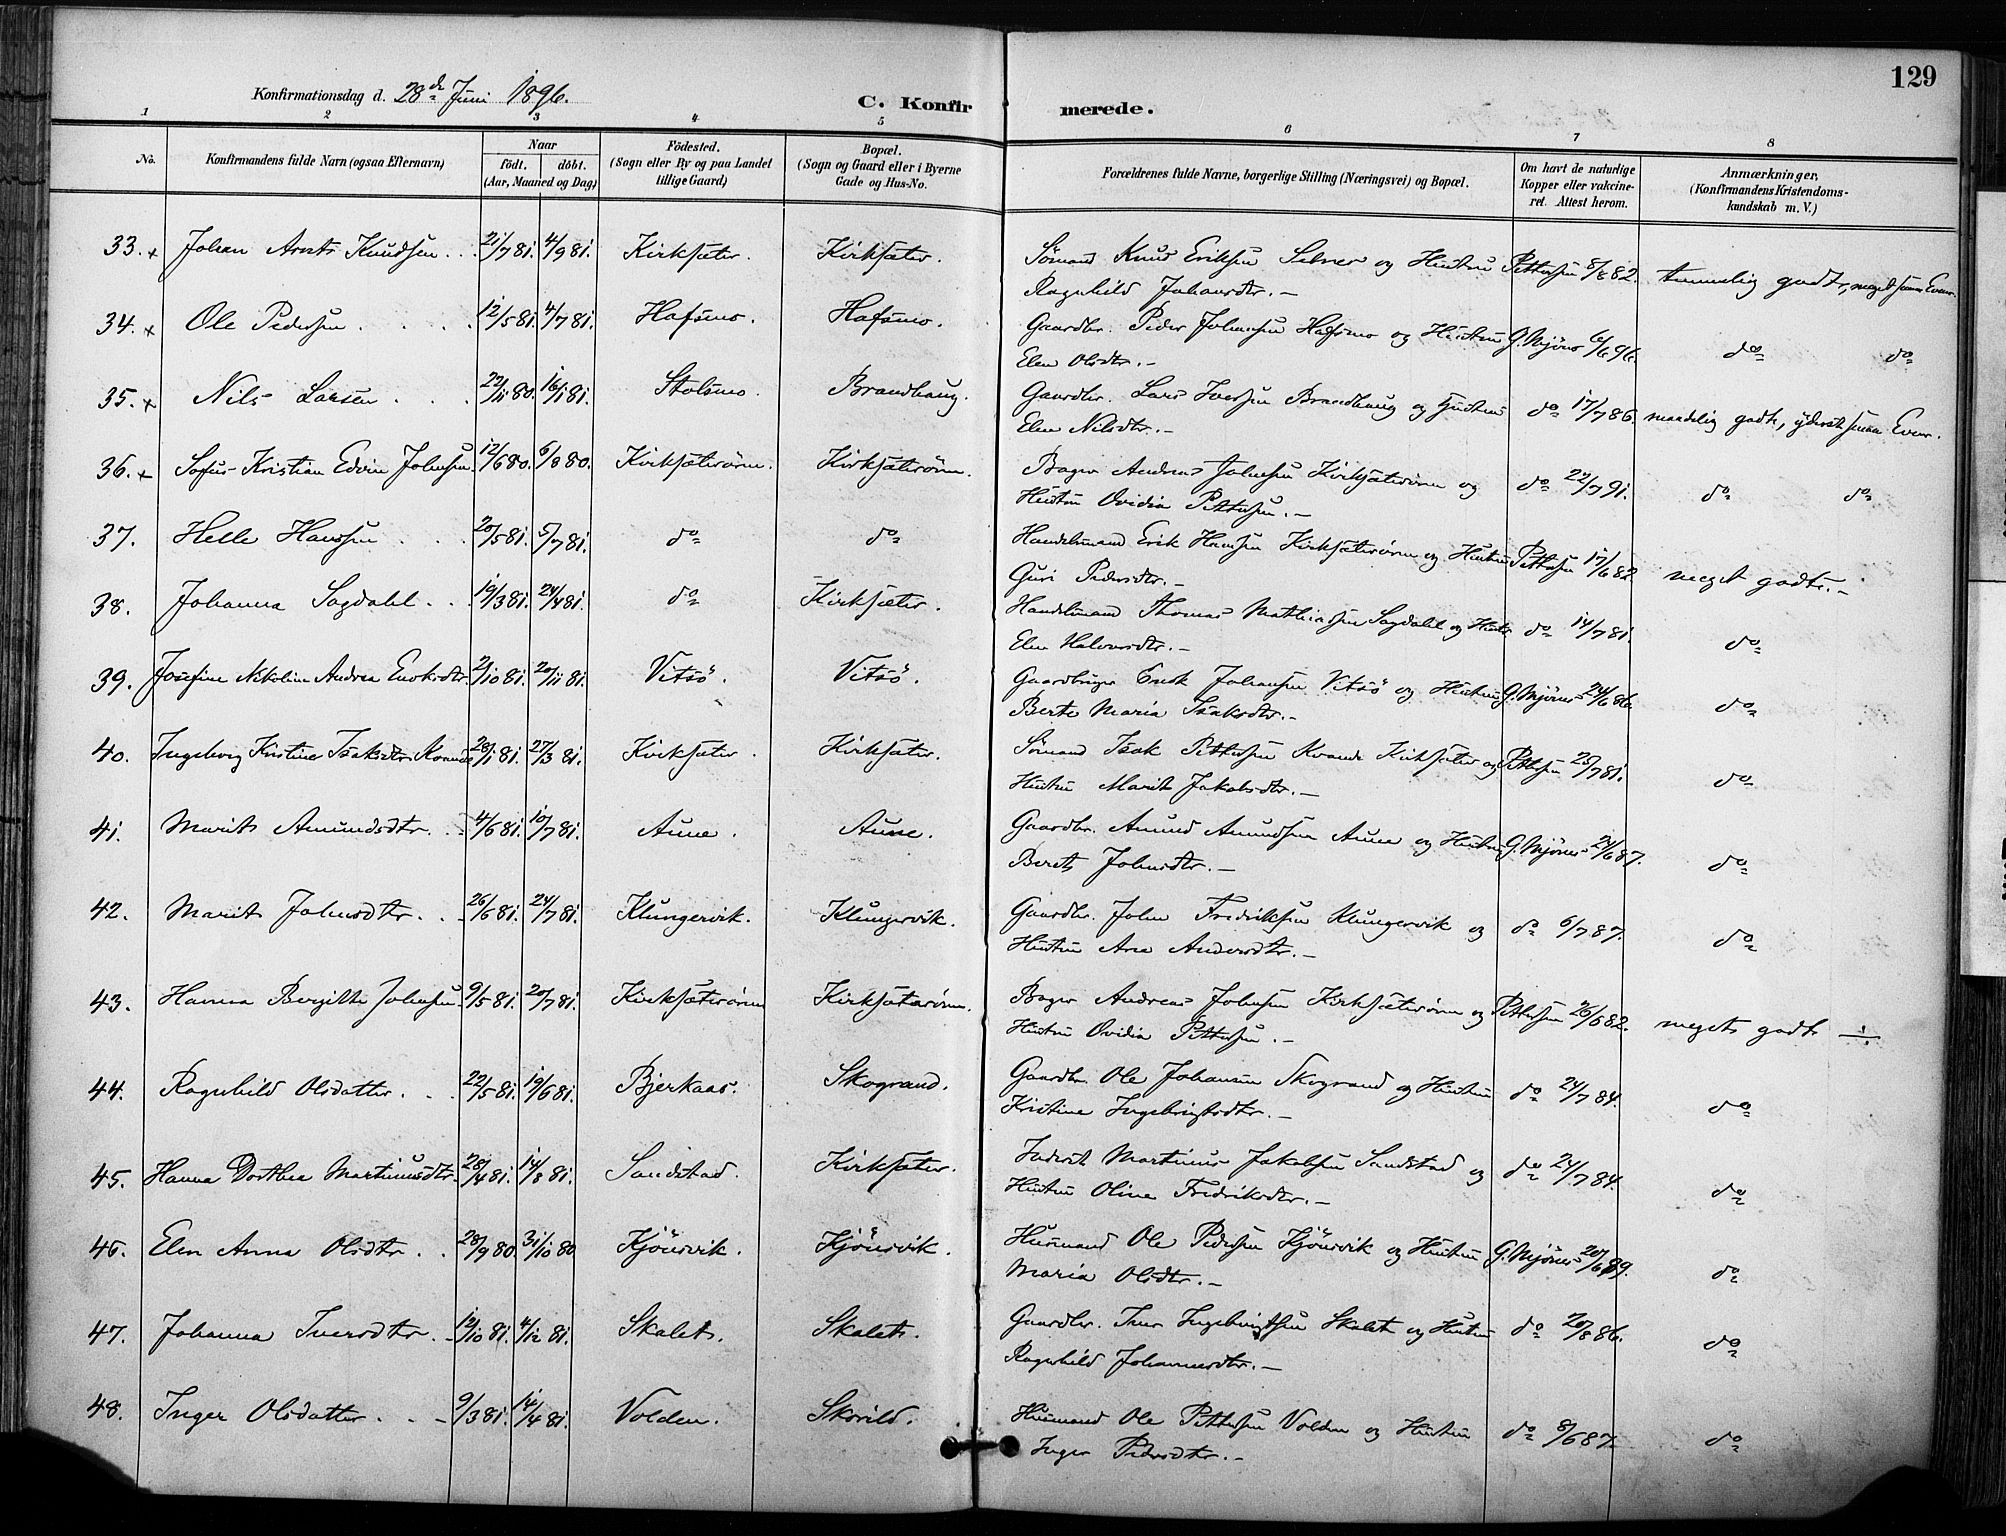 129
Konfirmationsdag d. 28de Juni 1896.
C. Konfirmerede.
1 2 3 4 5 6 7 8
No.
Konfirmandens fulde Navn (ogsaa Efternavn)
Naar
födt. döbt.
(Aar, Maaned og Dag)
Födested.
(Sogn eller By og paa Landet
tillige Gaard)
Bopæl.
(Sogn og Gaard eller i Byerne
Gade og Hus-No.
Forældrenes fulde Navne, borgerlige Stilling (Næringsvei) og Bopæl.
Om havt de naturlige
Kopper eller vakcine-
ret. Attest herom.
Anmærkninger,
(Konfirmandens Kristendoms-
kundskab m.V.)
33. + Johan Arnt Knudsen . . 21/7 81. 4/9 81. Kirksæter. Kirksæter. Sømand Knud Eriksen og Hustru Pettersen 8/8 82. temmelig godt, meget
Ragnhild Johansdtr. —
34. + Ole Pedersen . . . . 12/5 81. 4/7 81. Hafsmo. Hafsmo. Gaardbr. Peder Johnsen Hafsmo og Hustru G. Mjönes 6/6 96. do do
Elen Olsdtr. —
35. + Nils Larsen . . . 22/11 80. 16/1 81. Stolsmo. Brandhaug. Gaardbr. Lars Iversen Brandhaug og Hustru do 17/7 86. maadelig godt, yderst smaa Evner.
Elen Nilsdtr. —
36. + Sofus Kristian Edvin Johnsen 12/6 80. 6/8 80. Kirksæterøren. Kirksæterøren. Bager Andreas Johnsen Kirksæterøren og do 22/7 91. do do
Hustru Ovidia Pettersen. —
37. Helle Hanssen . . . 20/5 81. 5/7 81. do do Handelsmand Erik Hansen Kirksæterøren og Hustru Pettersen 17/6 82. meget godt. —
Guri Pedersdtr. —
38. Johanna Sagdahl . . . 19/3 81. 24/4 81. do Kirksæter. Handelsmand Thomas Mathiassen Sagdahl og Hustr. do 14/7 81. do
Elen Halvorsdtr. —
39. Josefine Nikoline Andrea Enoksdtr. 2/10 81. 20/11 81. Vitsö. Vitsö. Gaardbruger Enok Johansen Vitsö og Hustru G. Mjönes 24/6 86. do
Berte Maria Isaksdtr. —
40. Ingeborg Kristine Isaksdtr. Kvande 28/1 81. 27/3 81. Kirksæter. Kirksæter. Sømand Isak Pettersen Kvande Kirksæter og Pettersen 25/7 81. do
Hustru Marit Jakobsdtr. —
41. Marit Amundsdtr. . . 4/6 81. 10/7 81. Aune. Aune. Gaardbr. Amund Amundsen Aune og Hustru G. Mjönes 24/6 87. do
Beret Johnsdtr. —
42. Marit Johnsdtr. . . 26/6 81. 24/7 81. Klungervik. Klungervik. Gaardbr. John Fredriksen Klungervik og do 6/7 87. do
Hustru Ane Andersdtr. —
43. Hanna Bergitte Johnsen 9/5 81. 20/7 81. Kirksæterøren Kirksæterøren. Bager Andreas Johnsen Kirksæterøren og Pettersen 26/6 82. meget godt ÷
Hustru Ovidia Pettersen. —
44. Ragnhild Olsdatter. . . 22/5 81. 19/6 81. Bjerkaas. Skogrand. Gaardbr. Ole Johansen Skogrand og Hustru do 24/7 84. do
Kristine Ingebrigtsdtr. —
45. Hanna Dorthea Martinusdtr. 28/4 81. 14/8 81. Sandstad. Kirksæter. Inderst Martinus Jakobsen Sandstad og do 24/7 84. do
Hustru Oline Fredriksdtr. —
46. Elen Anna Olsdtr. . . 28/9 80. 31/10 80 Kjönsvik. Kjönsvik. Husmand Ole Pedersen Kjönsvik og Hustru G. Mjönes 20/6 89. do
Maria Olsdtr. —
47. Johanna Iversdtr. . . 12/10 81. 4/12 81. Skalet. Skalet. Gaardbr. Iver Ingebrigtsen Skalet og Hustru do 20/8 86. do
Ragnhild Johannesdtr. —
48. Inger Olsdatter. . . 9/3 81. 14/4 81. Volden. Skeild. Husmand Ole Pettersen Volden og Hustru do 8/6 87. do
Inger Pedersdtr. —